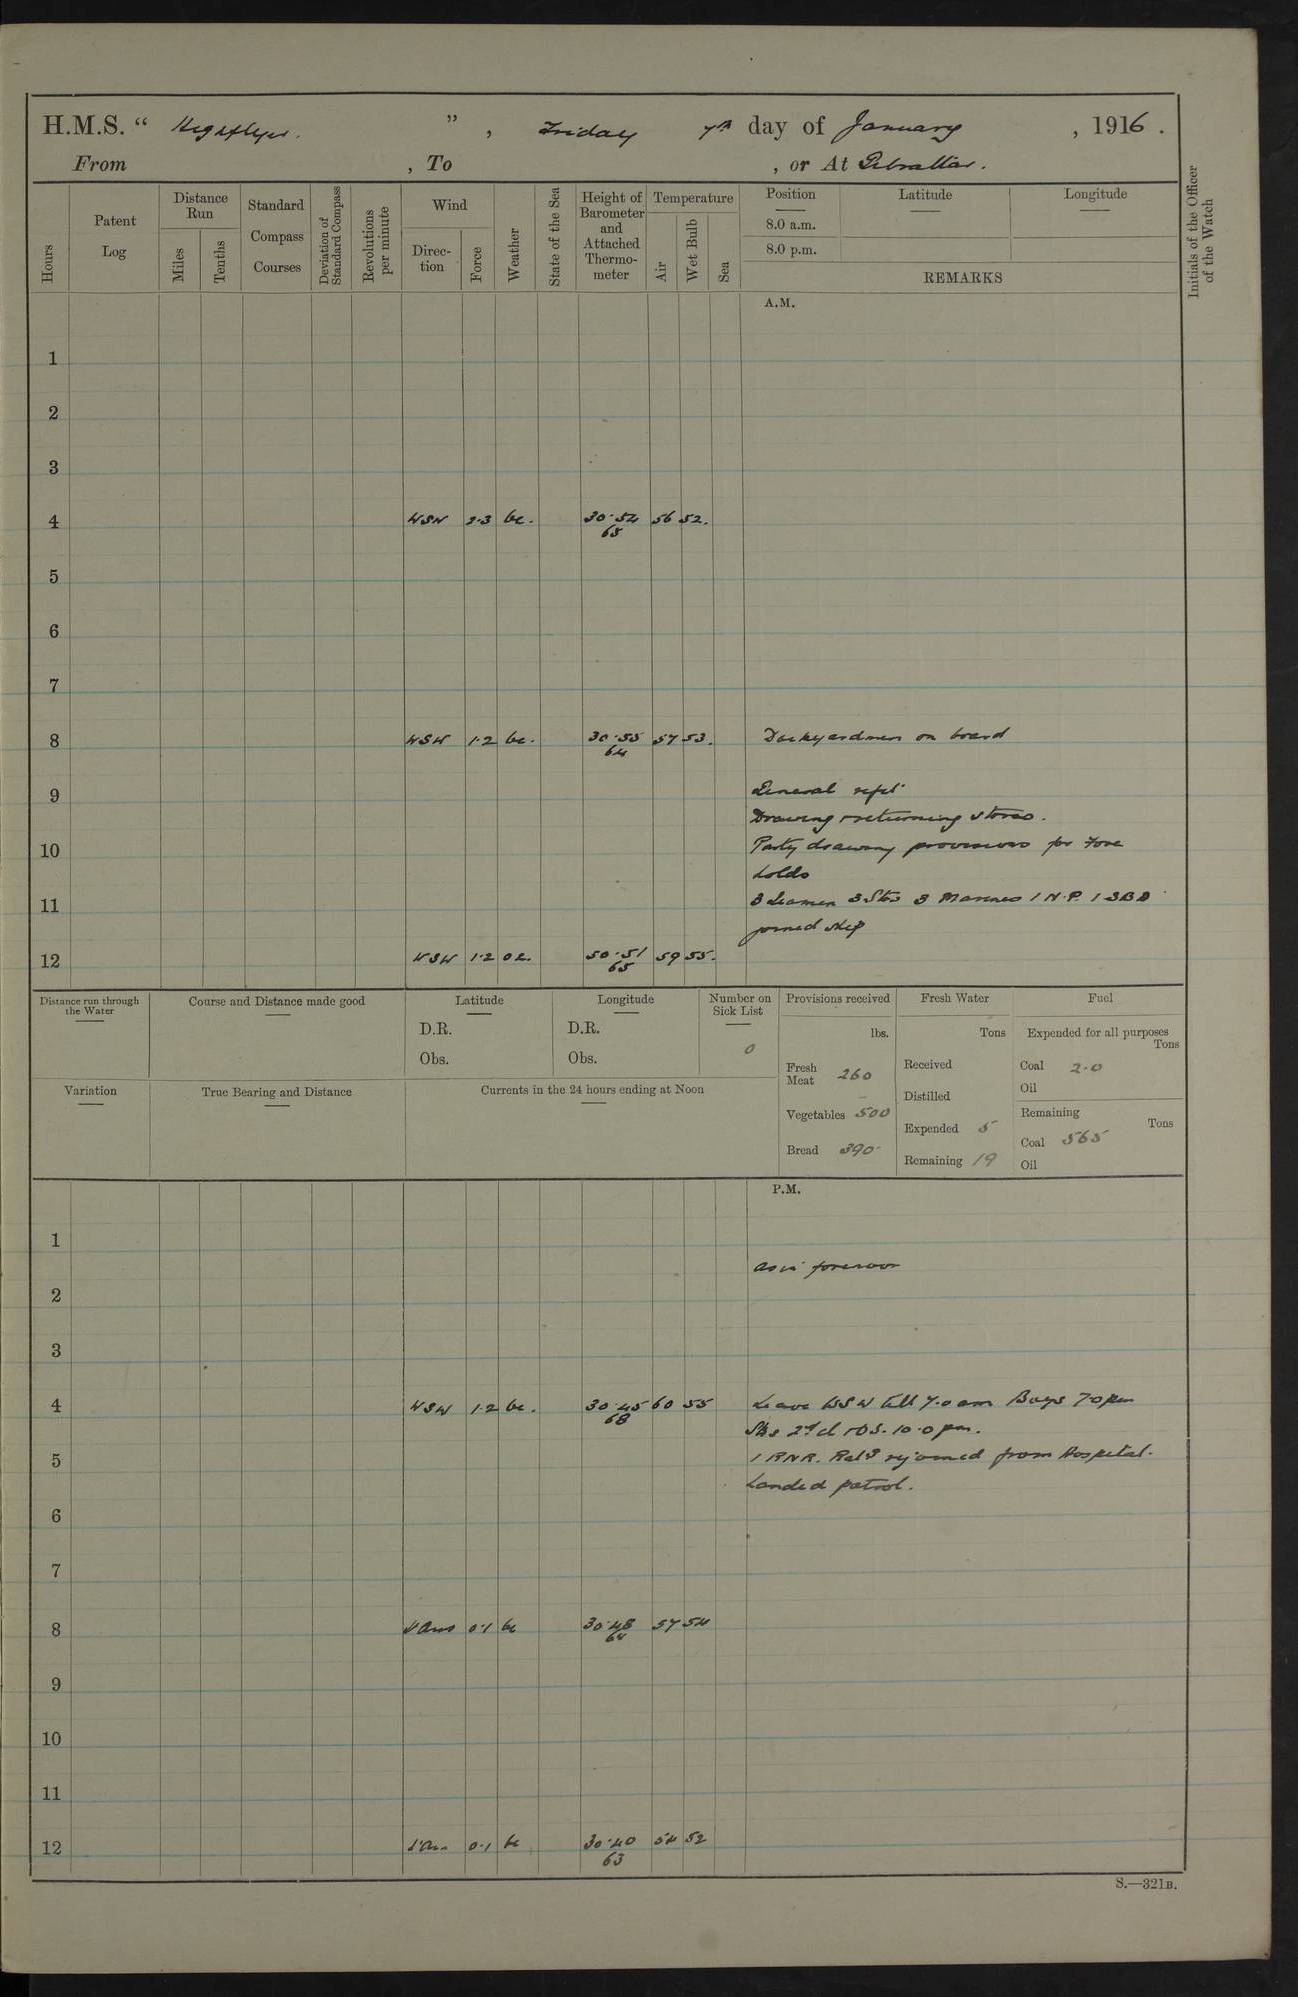 H.M.S. “ Highflyer. ” , Friday 7th day of January , 1916 .
From , To , or At Gibraltar.
Hours
Patent Log
Distance Run
Miles
Tenths
Standard Compass Courses
Deviation of Standard Compass
Revolutions per minute
Wind
Direction
Force
Weather
State of the Sea
Height of Barometer and Attached Thermometer
Temperature
Air
Wet Bulb
Sea
Position
8.0 a.m.
8.0 p.m.
Latitude
Longitude
REMARKS
Initials of the Officer of the Watch
A.M.
1
2
3
4 WSW 2·3 bc. 30·54 56 52.
65
5
6
7
8 WSW 1·2 bc. 30·55 57 53. Dockyardmen on board
64
9 General refit
Drawing & returning stores.
10 Party drawing provisions for Fore
holds
11 3 Seamen 3 Stos 3 Marines 1 N.P. 1 SBA
joined ship
12 WSW 1·2 oc. 50·51 59 55.
65
Distance run through the Water
Course and Distance made good
Latitude
D.R.
Obs.
Longitude
D.R.
Obs.
Number on Sick List
0
Provisions received
lbs.
Fresh Meat 260
Vegetables 500
Bread 390
Fresh Water
Tons
Received
Distilled
Expended 5
Remaining 19
Fuel
Expended for all purposes
Tons
Coal 2·0
Oil
Remaining
Tons
Coal 565
Oil
Variation
True Bearing and Distance
Currents in the 24 hours ending at Noon
P.M.
1
as in forenoon
2
3
4 WSW 1·2 bc. 30·45 60 55 Leave to S W till 7.0 am Boys 7.0 pm
68
Stos 2nd cl & OS. 10.0 pm.
5 1 RNR. Rat'g rejoined from Hospital.
Landed patrol.
6
7
8 Vars 0·1 bc 30·48 57 54
64
9
10
11
12 0·1 bc 30·40 54 52
63
S.—321B.